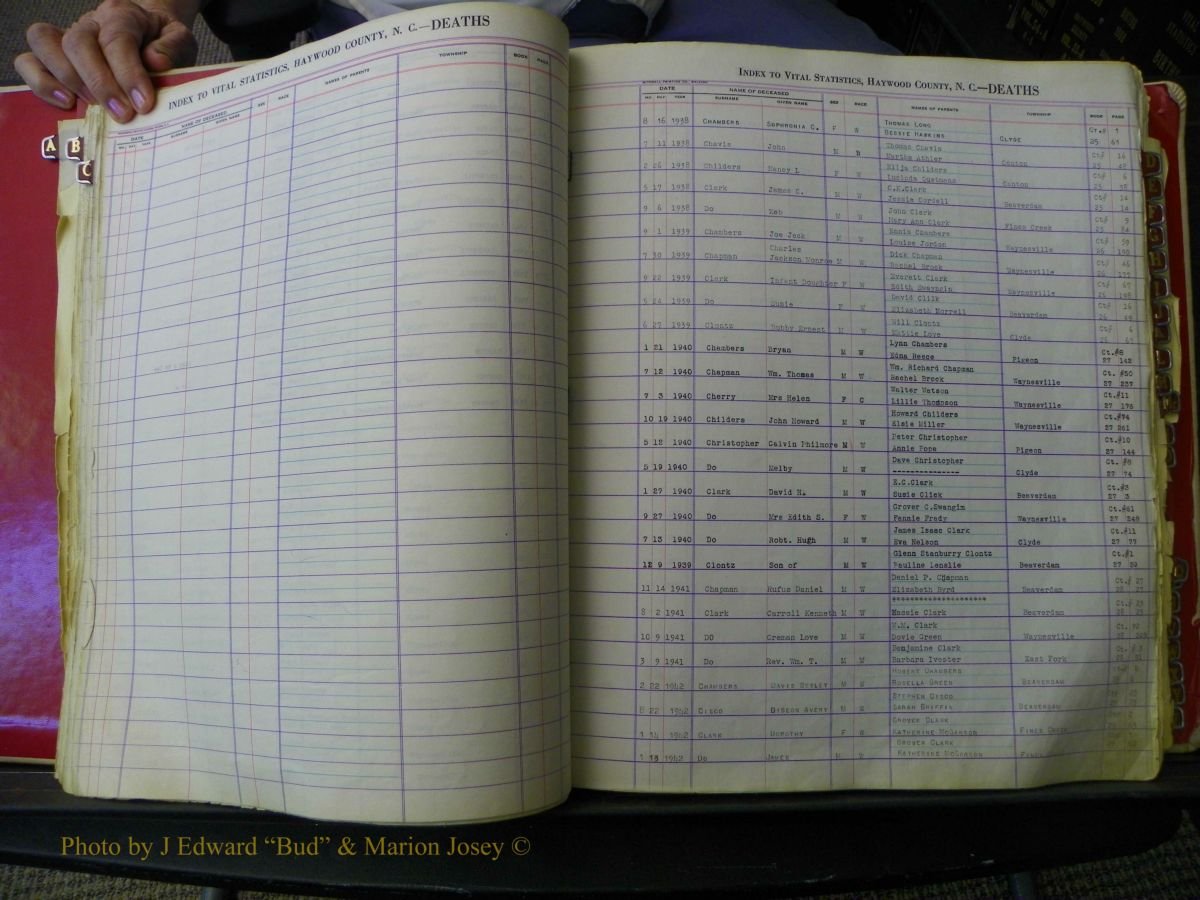 INDEX TO VITAL STATISTICS, HAYWOOD COUNTY, N. C.—DEATHS
DATE NAME OF DECEASED SEX RACE NAMES OF PARENTS TOWNSHIP BOOK PAGE
MO. DAY YEAR SURNAME GIVEN NAME
A B
C
INDEX TO VITAL STATISTICS, HAYWOOD COUNTY, N. C.—DEATHS
DATE NAME OF DECEASED SEX RACE NAMES OF PARENTS TOWNSHIP BOOK PAGE
MO. DAY YEAR SURNAME GIVEN NAME
THOMAS LONG CT.# 1
8 16 1938 CHAMBERS SOPHRONIA C. F W BESSIE HASKINS CLYDE 25 61
Thomas Chavis Ct# 16
7 11 1938 Chavis John M B Martha Canton 25
Childers Ct# 6
2 26 1938 Childers Nancy L F W Lucinda Canton 25 38
C.K.Clark Ct# 14
5 17 1938 Clark James C. M W Jessie Cordell Beaverdam 25 14
John Clark Ct# 9
9 6 1938 Do Zeb M W Mary Ann Clark Fines Creek 25 84
Ennis Chambers Ct# 59
9 1 1939 Chambers Joe Jack M W Louise Jordon Waynesville 26
Charles Dick Chapman Ct# 46
7 30 1939 Chapman Jackson Monroe M W Rachel Brock Waynesville 26
Everett Clark Ct# 67
9 22 1939 Clark Infant Daughter F W Edith Swayngin Waynesville 26 198
David Clilk Ct# 16
5 24 1939 Do Susie F W Elizabeth Morrell Beaverdam 26
Will Clontz Ct# 4
6 27 1939 Clontz Bobby Ernest M W Mattie Love Clyde 26 63
Lynn Chambers Ct.#8
1 21 1940 Chambers Bryan M W Edna Reece Pigeon 27 142
Wm. Richard Chapman Ct. #50
7 12 1940 Chapman Wm. Thomas M W Rachel Brock Waynesville 27 237
Walter Watson Ct.#11
7 3 1940 Cherry Mrs Helen F C Lillie Thompson Waynesville 27 176
Howard Childers Ct.#74
10 19 1940 Childers John Howard M W Elsie Miller Waynesville 27 261
Peter Christopher Ct.#10
5 12 1940 Christopher Calvin Philmore M W Annie Pope Pigeon 27 144
Dave Christopher Ct. #8
5 19 1940 Do Melby M W --------------- Clyde 27 74
E.C.Clark Ct.#3
1 27 1940 Clark David H. M W Susie Glick Beaverdam 27 3
Grover C.Swangim Ct.#61
9 27 1940 Do Mrs Edith S. F W Fannie Frady Waynesville 27 248
James Isaac Clark Ct.#11
7 13 1940 Do Robt. Hugh M W Eva Nelson Clyde 27 77
Glenn Stanburry Clontz Ct.#1
12 9 1939 Clontz Son of M W Pauline Lenalie Beaverdam 27 29
Daniel P. Chapman Ct.# 27
11 14 1941 Chapman Rufus Daniel M W Elizabeth Byrd Beaverdam 28 27
********************* Ct.# 23
8 2 1941 Clark Carroll Kenneth M W Hassie Clark Beaverdam 28 23
W.M. Clark Ct.
10 9 1941 DO Creman Love M W Dovie Green Waynesville 28
Benjamine Clark
3 9 1941 Do Rev. Wm. T. M W Barbara Ivester East Fork 28 81
ROBERT CHAMBERS
2 22 1942 CHAMBERS DAVID M W ROSELLA GREEN BEAVERDAM
STEPHEN CISCO
8 22 1942 CISCO GIDEON AVERY M W SARAH GRIFFIN BEAVERDAM
GROVER CLARK
1 14 1942 CLARK DOROTHY F W KATHERINE FINES CREEK
GROVER CLARK
1 18 1942 DO JAMES M W KATHERINE FINES
Photo by J Edward “Bud” & Marion Josey ©